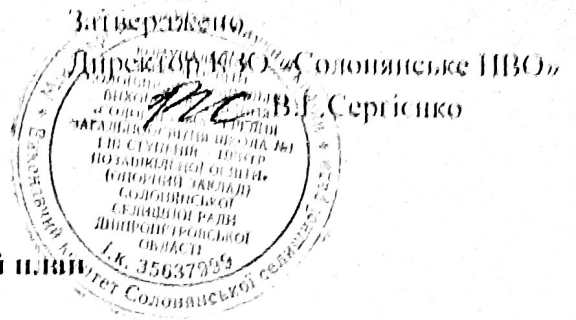 Затверджено
Директор КЗО «Солонянське НВО»
В.Г.Сергієнко
ЗАГАЛЬНООСВІТНЯ ШКОЛА №1
І-ІІІ СТУПЕНІВ – ЦЕНТР
ПОЗАШКІЛЬНОЇ ОСВІТИ»
(ОПОРНИЙ ЗАКЛАД)
СОЛОНЯНСЬКОЇ
СЕЛИЩНОЇ РАДИ
ДНІПРОПЕТРОВСЬКОЇ
ОБЛАСТІ
І.К. 35637999
Виконавчий комітет Солонянської селищної ради
й план